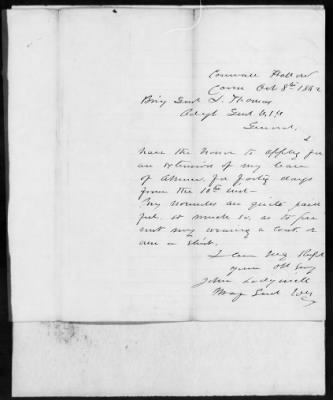 Cornwall Hollow
Conn Oct 8th 1862
Brig Genl L. Thomas
Adgt Genl U.S.
General.
I
have the honor to apply for
an extension of my leave
of absence for forty days
from the 10th inst—
My wounds are quite pain
ful. so much so, as to pre
vent my wearing a coat. or
even a shirt.
I am very Respt
your Obt
John Sedgwick
Maj Genl Vols